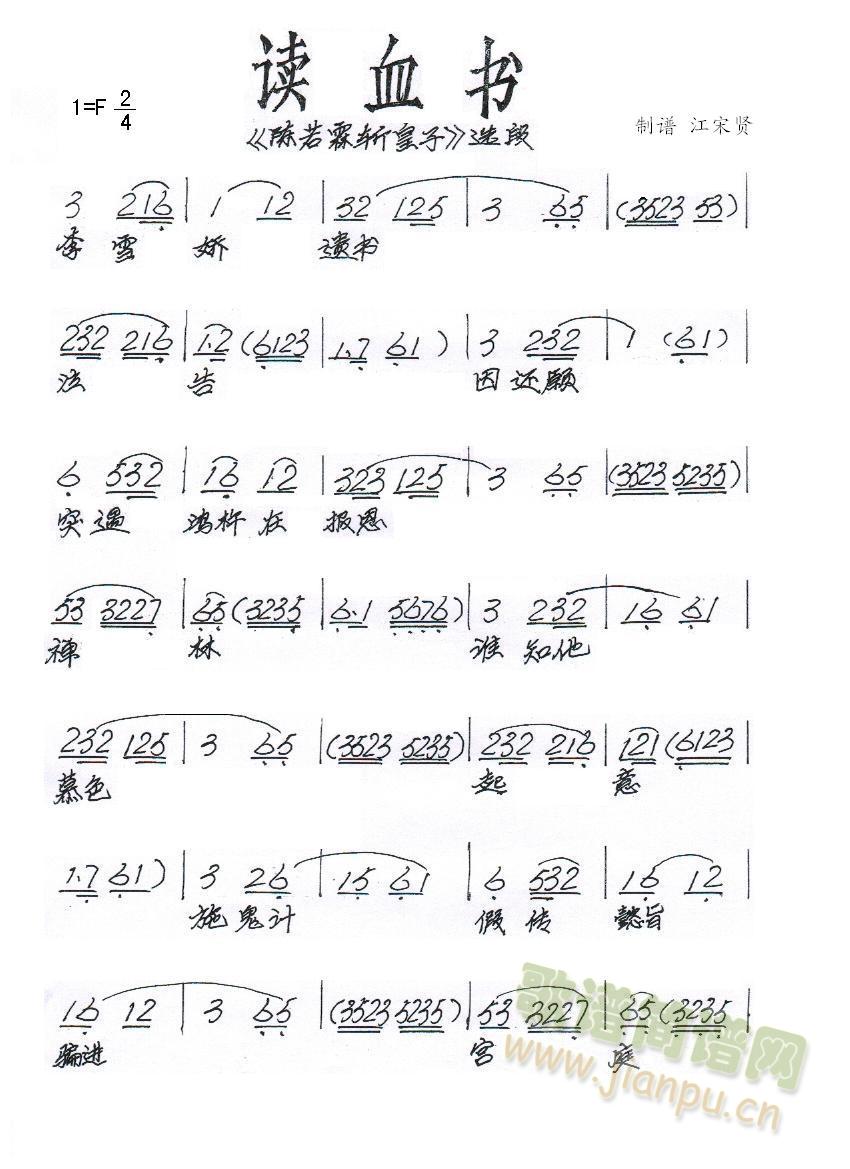 读血书
1=F 2/4
《陈若霖斩皇子》选段
制谱 江宋贤
3 216 | 1 12 | 32 125 | 3 65 | (3523 53) |
李雪 娇 遗书
232 216 | 1.2 (6123 | 1.7 61) | 3 232 | 1 (61) |
泣 告 因还愿
6 532 | 16 12 | 323 125 | 3 65 | (3523 5235) |
突遇 鸿 在 报恩
53 3227 | 65 (3235 | 6.1 5676) | 3 232 | 16 61 |
禅 林 谁 知他
232 125 | 3 65 | (3523 5235) | 232 216 | 121 (6123 |
慕色 起 意
1.7 61) | 3 26 | 15 61 | 6 532 | 16 12 |
施鬼计 假传 懿旨
16 12 | 3 65 | (3523 5235) | 53 3227 | 65 (3235 |
骗进 宫 庭
歌谱简谱网
www.jianpu.cn